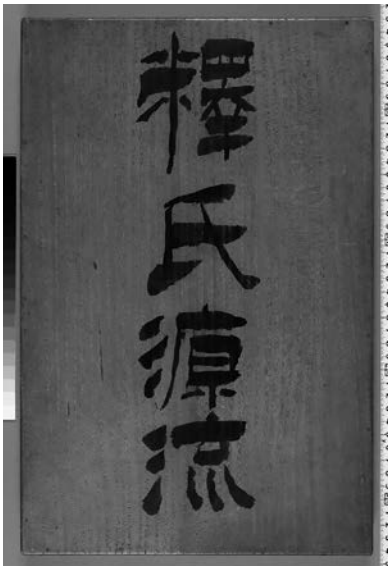 釋氏源流